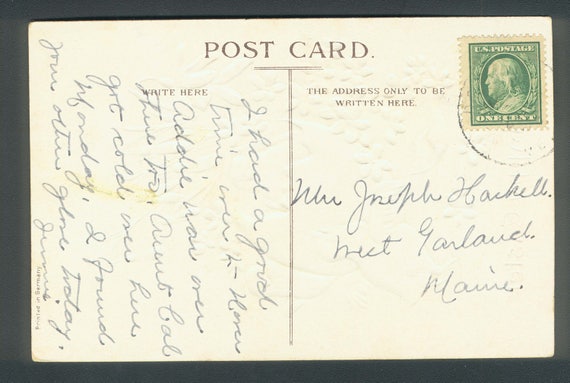 POST CARD.
WRITE HERE
THE ADDRESS ONLY TO BE
WRITTEN HERE.
U.S. POSTAGE
ONE CENT
I had a good
time over
Addie was over
there too. Aunt
got cold over here
Monday. I found
your other glove today.
Jennie
Mr Joseph Haskell.
West Garland.
Maine.
Printed in Germany